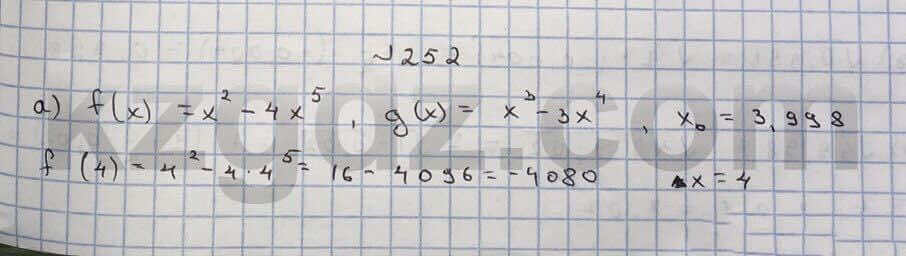 №252
a) f(x) = x² - 4x⁵, g(x) = x³ - 3x⁴, x₀ = 3,998
f(4) = 4² - 4·4⁵ = 16 - 4096 = -4080 x = 4
kzgdz.com